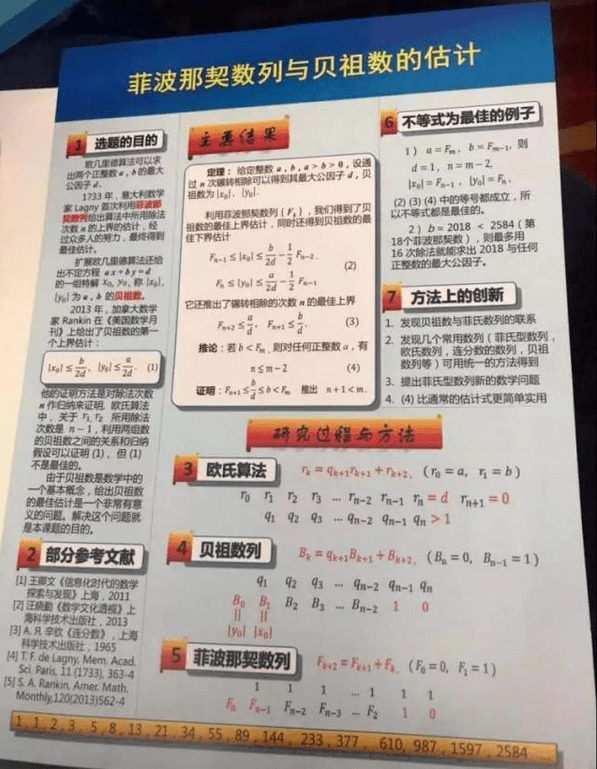 菲波那契数列与贝祖数的估计
1 选题的目的
欧几里德算法可以求
出两个正整数 a , b 的最大
公因子 d.
1733 年，意大利数学
家 Lagny 首次利用菲波那
契数列给出算法中所用除法
次数 n 的上界的估计，经
过众多人的努力，最终得到
最佳估计。
扩展欧几里德算法还给
出不定方程 ax + by = d
的一组特解 x₀, y₀, 称 |x₀|,
|y₀| 为 a , b 的贝祖数。
2013 年，加拿大数学
家 Rankin 在《美国数学月
刊》上给出了贝祖数的第一
个上界估计：
|x₀| ≤ b/2d, |y₀| ≤ a/2d. (1)
他的证明方法是对除法次数
n 作归纳来证明, 欧氏算法
中，关于 r₁, r₂ 所用除法
次数是 n − 1，利用两组数
的贝祖数之间的关系和归纳
假设可以证明 (1)、但 (1)
不是最佳的。
由于贝祖数是数学中的
一个基本概念，给出贝祖数
的最佳估计是一个非常有意
义的问题。解决这个问题就
是本课题的目的。
2 部分参考文献
[1] 王卿文《信息化时代的数学
探索与发现》上海，2011
[2] 汪晓勤《数学文化透视》上
海科学技术出版社，2013
[3] А. Я. 辛钦《连分数》，上海
科学技术出版社，1965
[4] T. F. de Lagny, Mem. Acad.
Sci. Paris, 11 (1733), 363-4
[5] S. A. Rankin, Amer. Math.
Monthly,120(2013)562-4
主要结果
定理：给定整数 a , b , a > b > 0 , 设通
过 n 次辗转相除可以得到其最大公因子 d, 贝
祖数为 |x₀|, |y₀|.
利用菲波那契数列 {Fₖ}，我们得到了贝
祖数的最佳上界估计，同时还得到贝祖数的最
佳下界估计
Fₙ₋₁ ≤ |x₀| ≤ b/2d − 1/2 Fₙ₋₂.
(2)
Fₙ ≤ |y₀| ≤ a/2d − 1/2 Fₙ₋₁
它还推出了辗转相除的次数 n 的最佳上界
Fₙ₊₂ ≤ a/d, Fₙ₊₁ ≤ b/d. (3)
推论：若 b < Fₘ, 则对任何正整数 a，有
n ≤ m − 2 (4)
证明：Fₙ₊₁ ≤ b/d ≤ b < Fₘ 推出 n + 1 < m.
6 不等式为最佳的例子
1 ) a = Fₘ, b = Fₘ₋₁, 则
d = 1, n = m − 2,
|x₀| = Fₙ₋₁, |y₀| = Fₙ,
(2) (3) (4) 中的等号都成立，所
以不等式都是最佳的。
2 ) b = 2018 < 2584（第
18个菲波那契数），则最多用
16 次除法就能求出 2018 与任何
正整数的最大公因子。
7 方法上的创新
1. 发现贝祖数与菲氏数列的联系
2. 发现几个常用数列（菲氏型数列，
欧氏数列，连分数的数列，贝祖
数列等）可用统一的方法得到
3. 提出菲氏型数列新的数学问题
4. (4) 比通常的估计式更简单实用
研究过程与方法
3 欧氏算法 rₖ = qₖ₊₁rₖ₊₁ + rₖ₊₂, (r₀ = a, r₁ = b)
r₀ r₁ r₂ r₃ ... rₙ₋₂ rₙ₋₁ rₙ = d rₙ₊₁ = 0
q₁ q₂ q₃ ... qₙ₋₂ qₙ₋₁ qₙ > 1
4 贝祖数列 Bₖ = qₖ₊₁Bₖ₊₁ + Bₖ₊₂, (Bₙ = 0, Bₙ₋₁ = 1)
q₁ q₂ q₃ ... qₙ₋₂ qₙ₋₁ qₙ
B₀ B₁ B₂ B₃ ... Bₙ₋₂ 1 0
|| ||
|y₀| |x₀|
5 菲波那契数列 Fₖ₊₂ = Fₖ₊₁ + Fₖ, (F₀ = 0, F₁ = 1)
1 1 1 ... 1 1 1
Fₙ Fₙ₋₁ Fₙ₋₂ Fₙ₋₃ ... F₂ 1 0
1 , 1 , 2 , 3 , 5 , 8 , 13 , 21 , 34 , 55 , 89 , 144 , 233 , 377 , 610, 987 , 1597 , 2584 ...